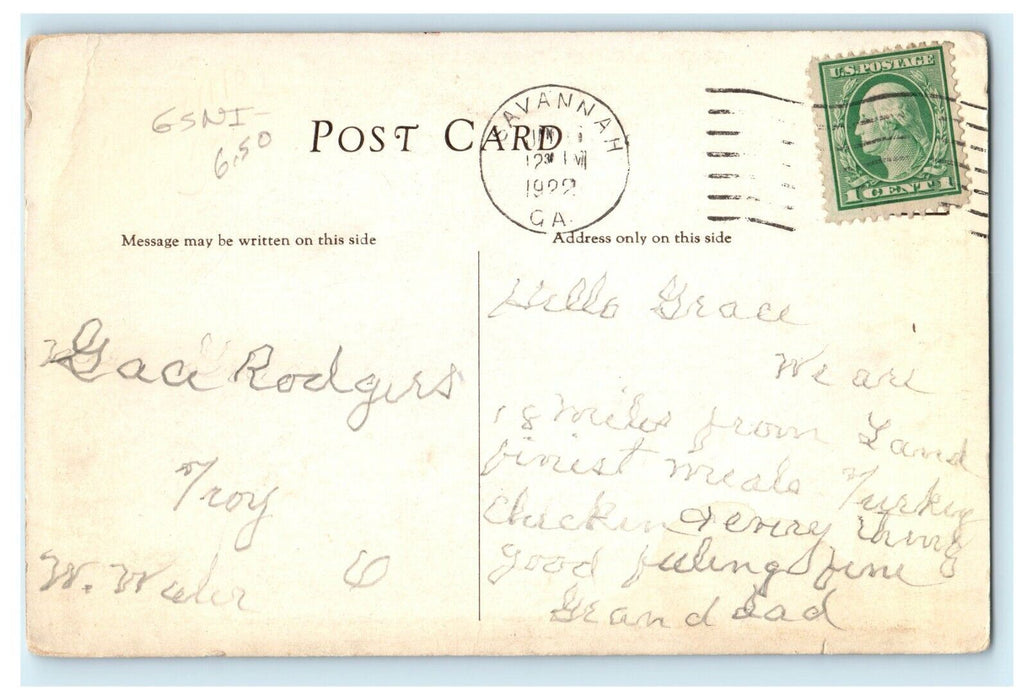 GSNI-
6.50
POST CARD
SAVANNAH
1922
GA.
U.S. POSTAGE
1 CENT 1
Message may be written on this side
Address only on this side
Grace Rodgers
Troy
W. Water
O
Hello Grace
We are
18 Miles from Land
finest meals Turkey
Chicken & every thing
good feeling fine
Grand dad